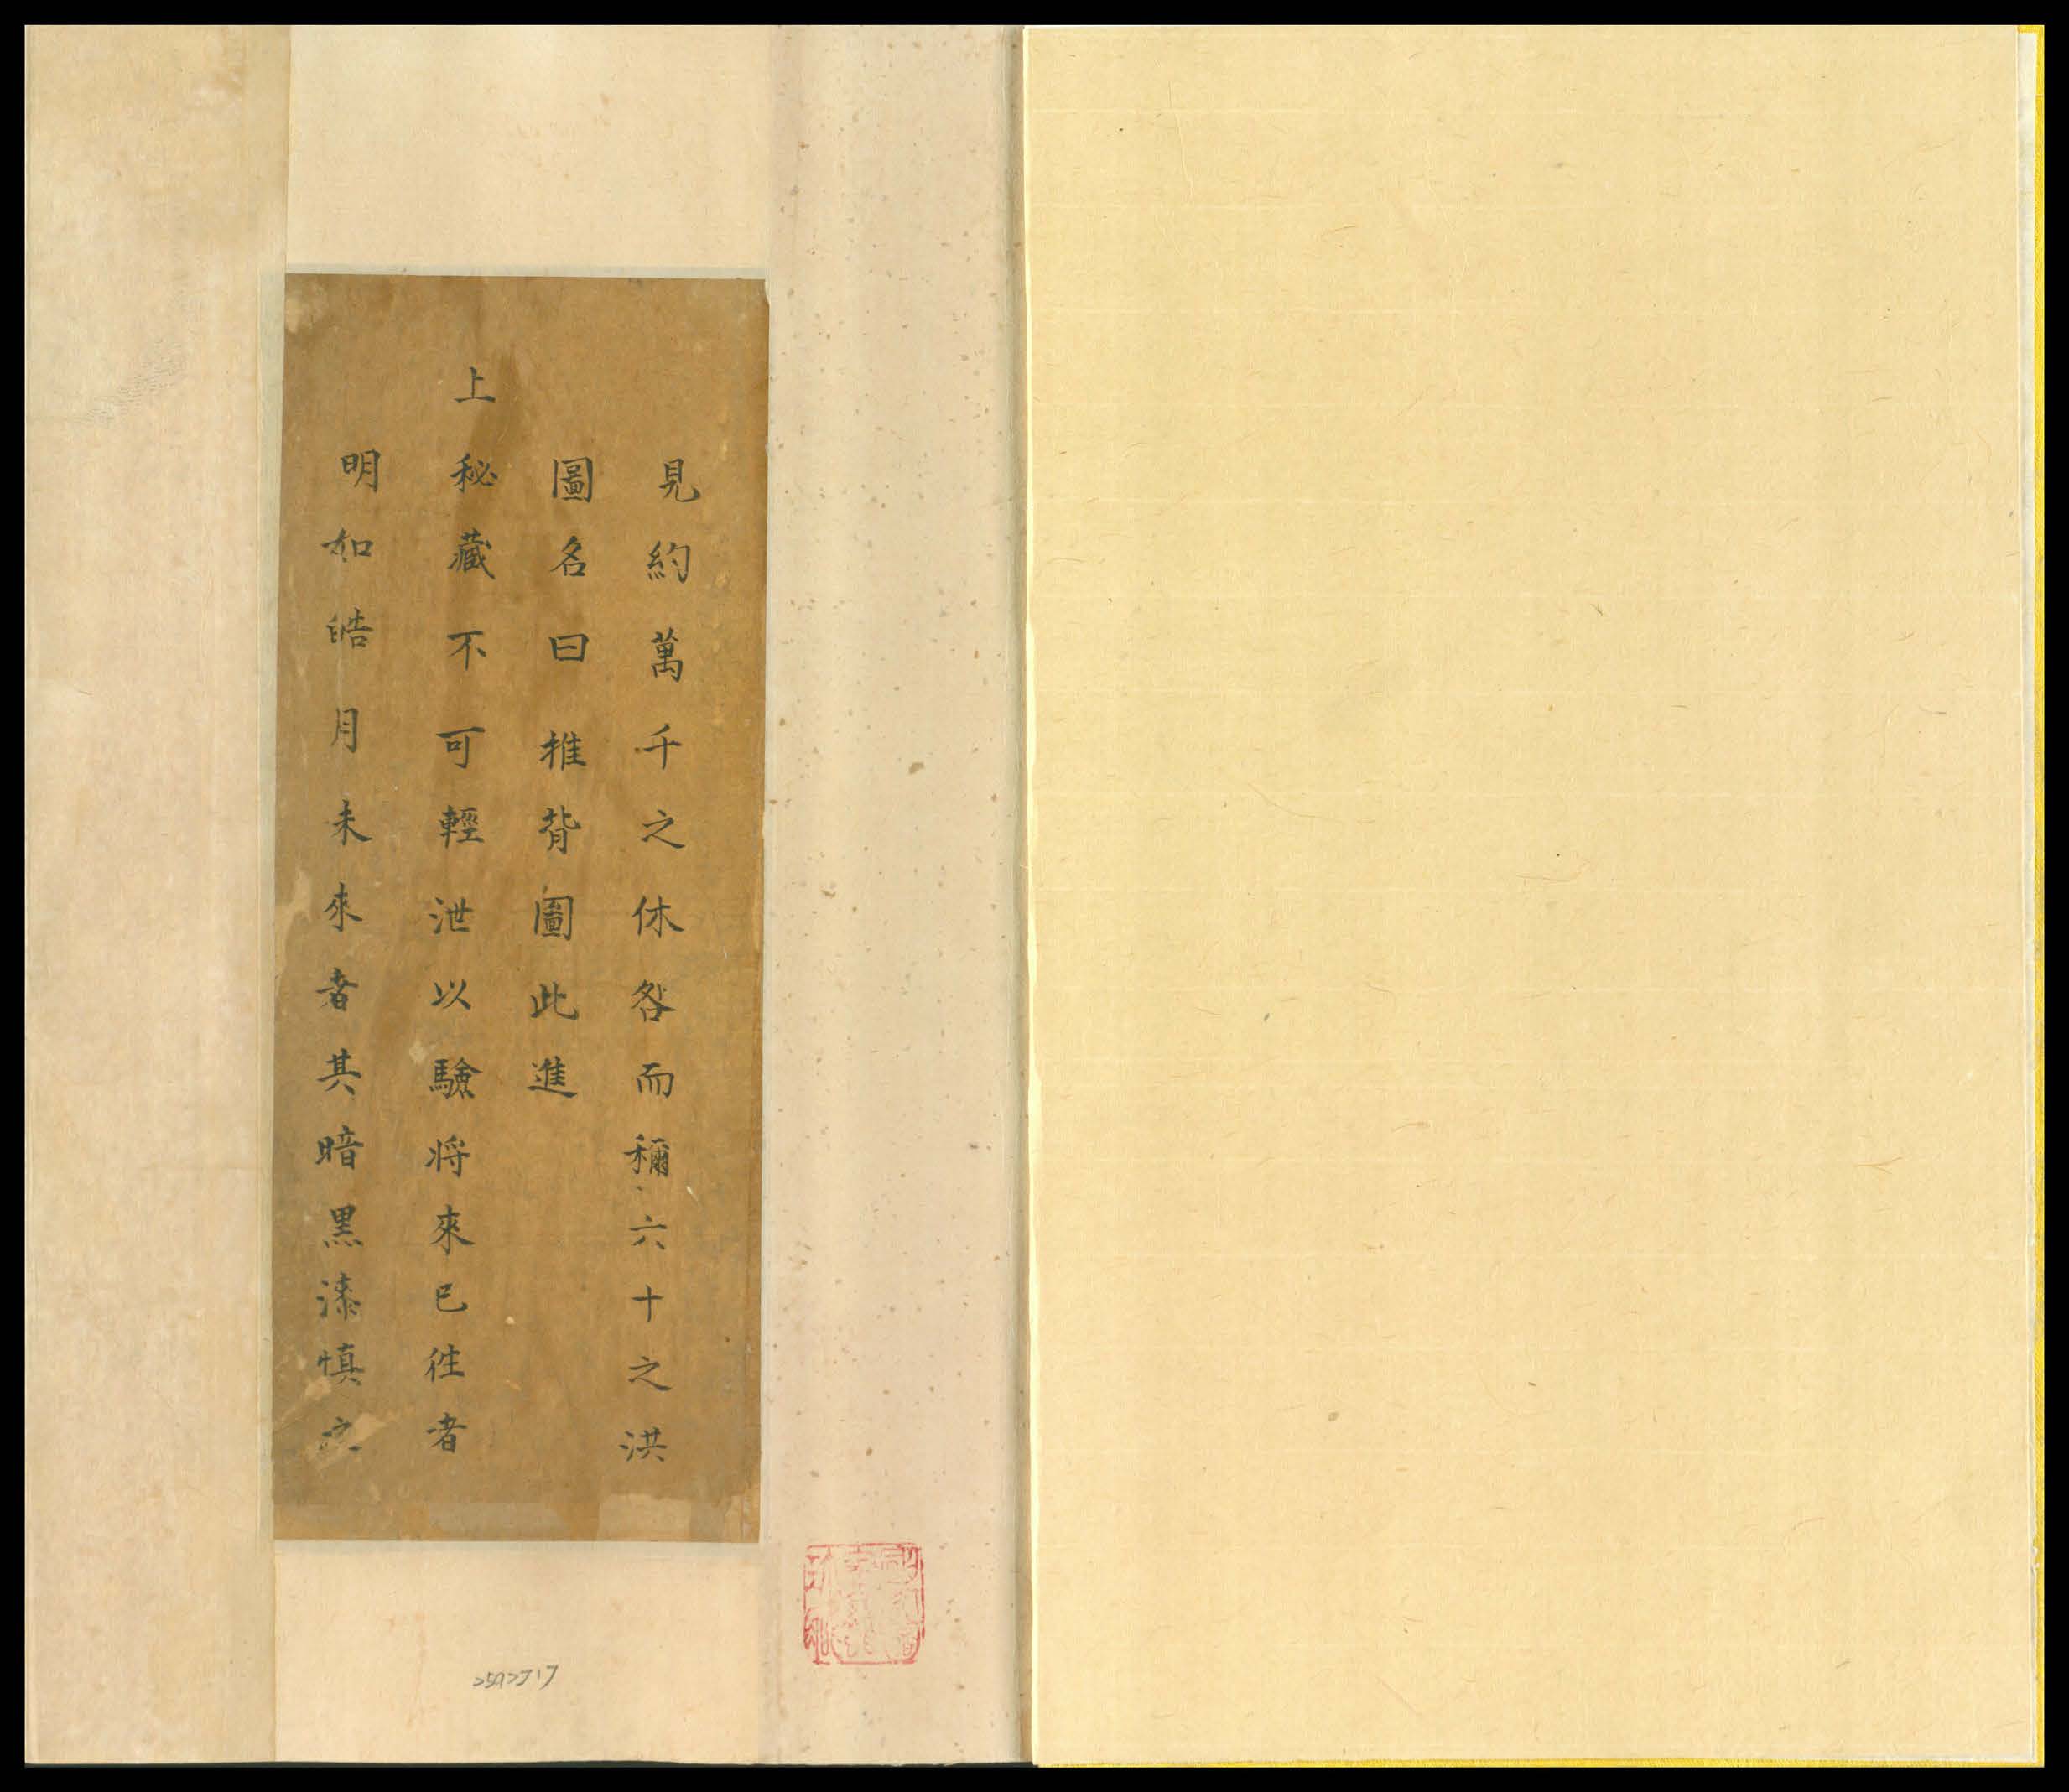 見約萬千之休咎而稱六十之洪
圖名曰推背圖此進
上秘藏不可輕泄以驗将來已徃者
明如皓月未來者其暗黑漆慎之